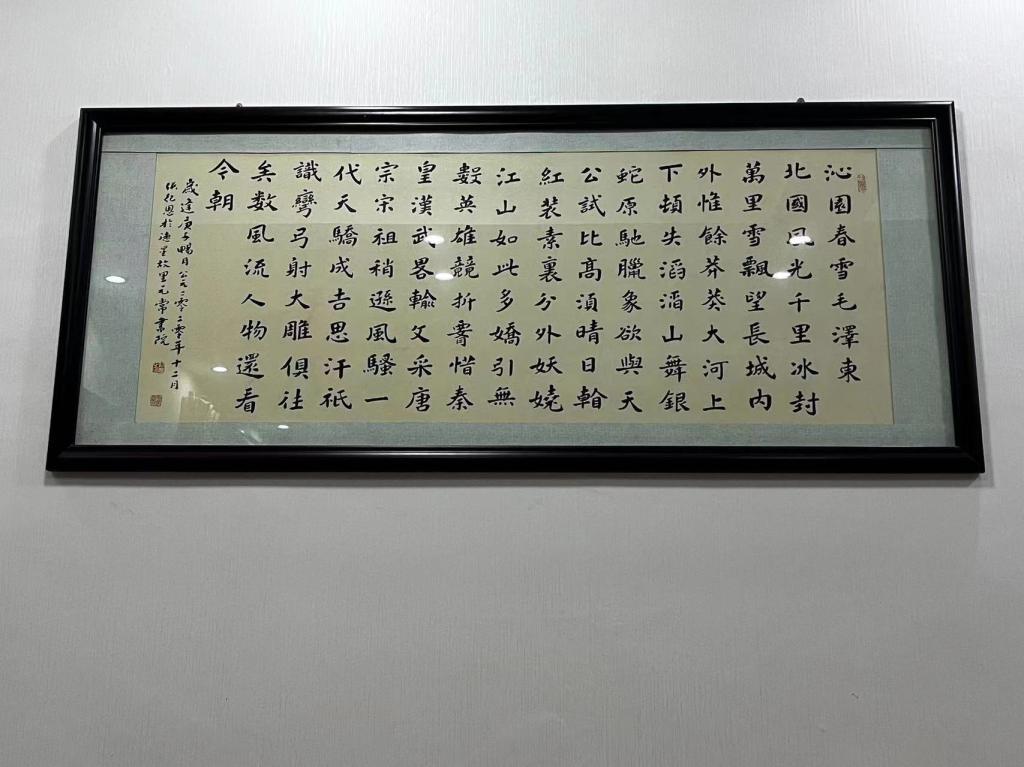 沁園春雪毛澤東
北國風光千里冰封
萬里雪飄望長城內
外惟餘莽莽大河上
下頓失滔滔山舞銀
蛇原馳臘象欲與天
公試比高須晴日看
紅裝素裹分外妖嬈
江山如此多嬌引無
數英雄競折腰惜秦
皇漢武畧輸文采唐
宗宋祖稍遜風騷一
代天驕成吉思汗祇
識彎弓射大雕俱往
矣数風流人物還看
今朝
歲逢庚子暢月公元二零二零年十二月
於 故里元常書院